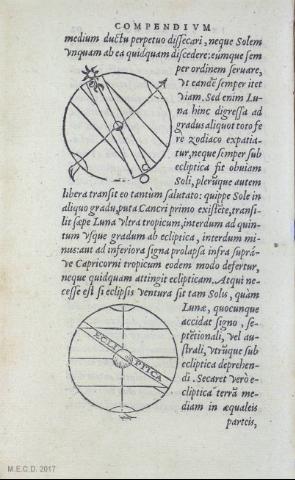 COMPENDIVM
medium ductu perpetuo dissecari, neque Solem
vnquam ab ea quidquam discedere: eumque sem
per ordinem seruare,
vt eandē semper itet
viam. Sed enim Lu-
na hinc digressa ad
gradus aliquot toto fe
re zodiaco expatia-
tur, neque semper sub
ecliptica fit obuiam
Soli, plerũque autem
libera transit eo tantùm salutato: quippe Sole in
aliquo gradu, puta Cancri primo existēte, transi-
lit sæpe Luna vltra tropicum, interdum ad quin-
tum vsque gradum ab ecliptica, interdum mi-
nus: aut ad inferiora signa prolapsa infra suprá-
ve Capricorni tropicum eodem modo defertur,
neque quidquam attingit eclipticam. Atqui ne-
cesse est si eclipsis ventura sit tam Solis, quàm
Lunæ, quocunque
accidat signo, se-
ptētionali, vel au-
strali, vtrũque sub
ecliptica deprehen-
di. Secaret verò e-
cliptica terrā me-
diam in æqualeis
parteis,
ECLIPTICA
M.E.C.D. 2017